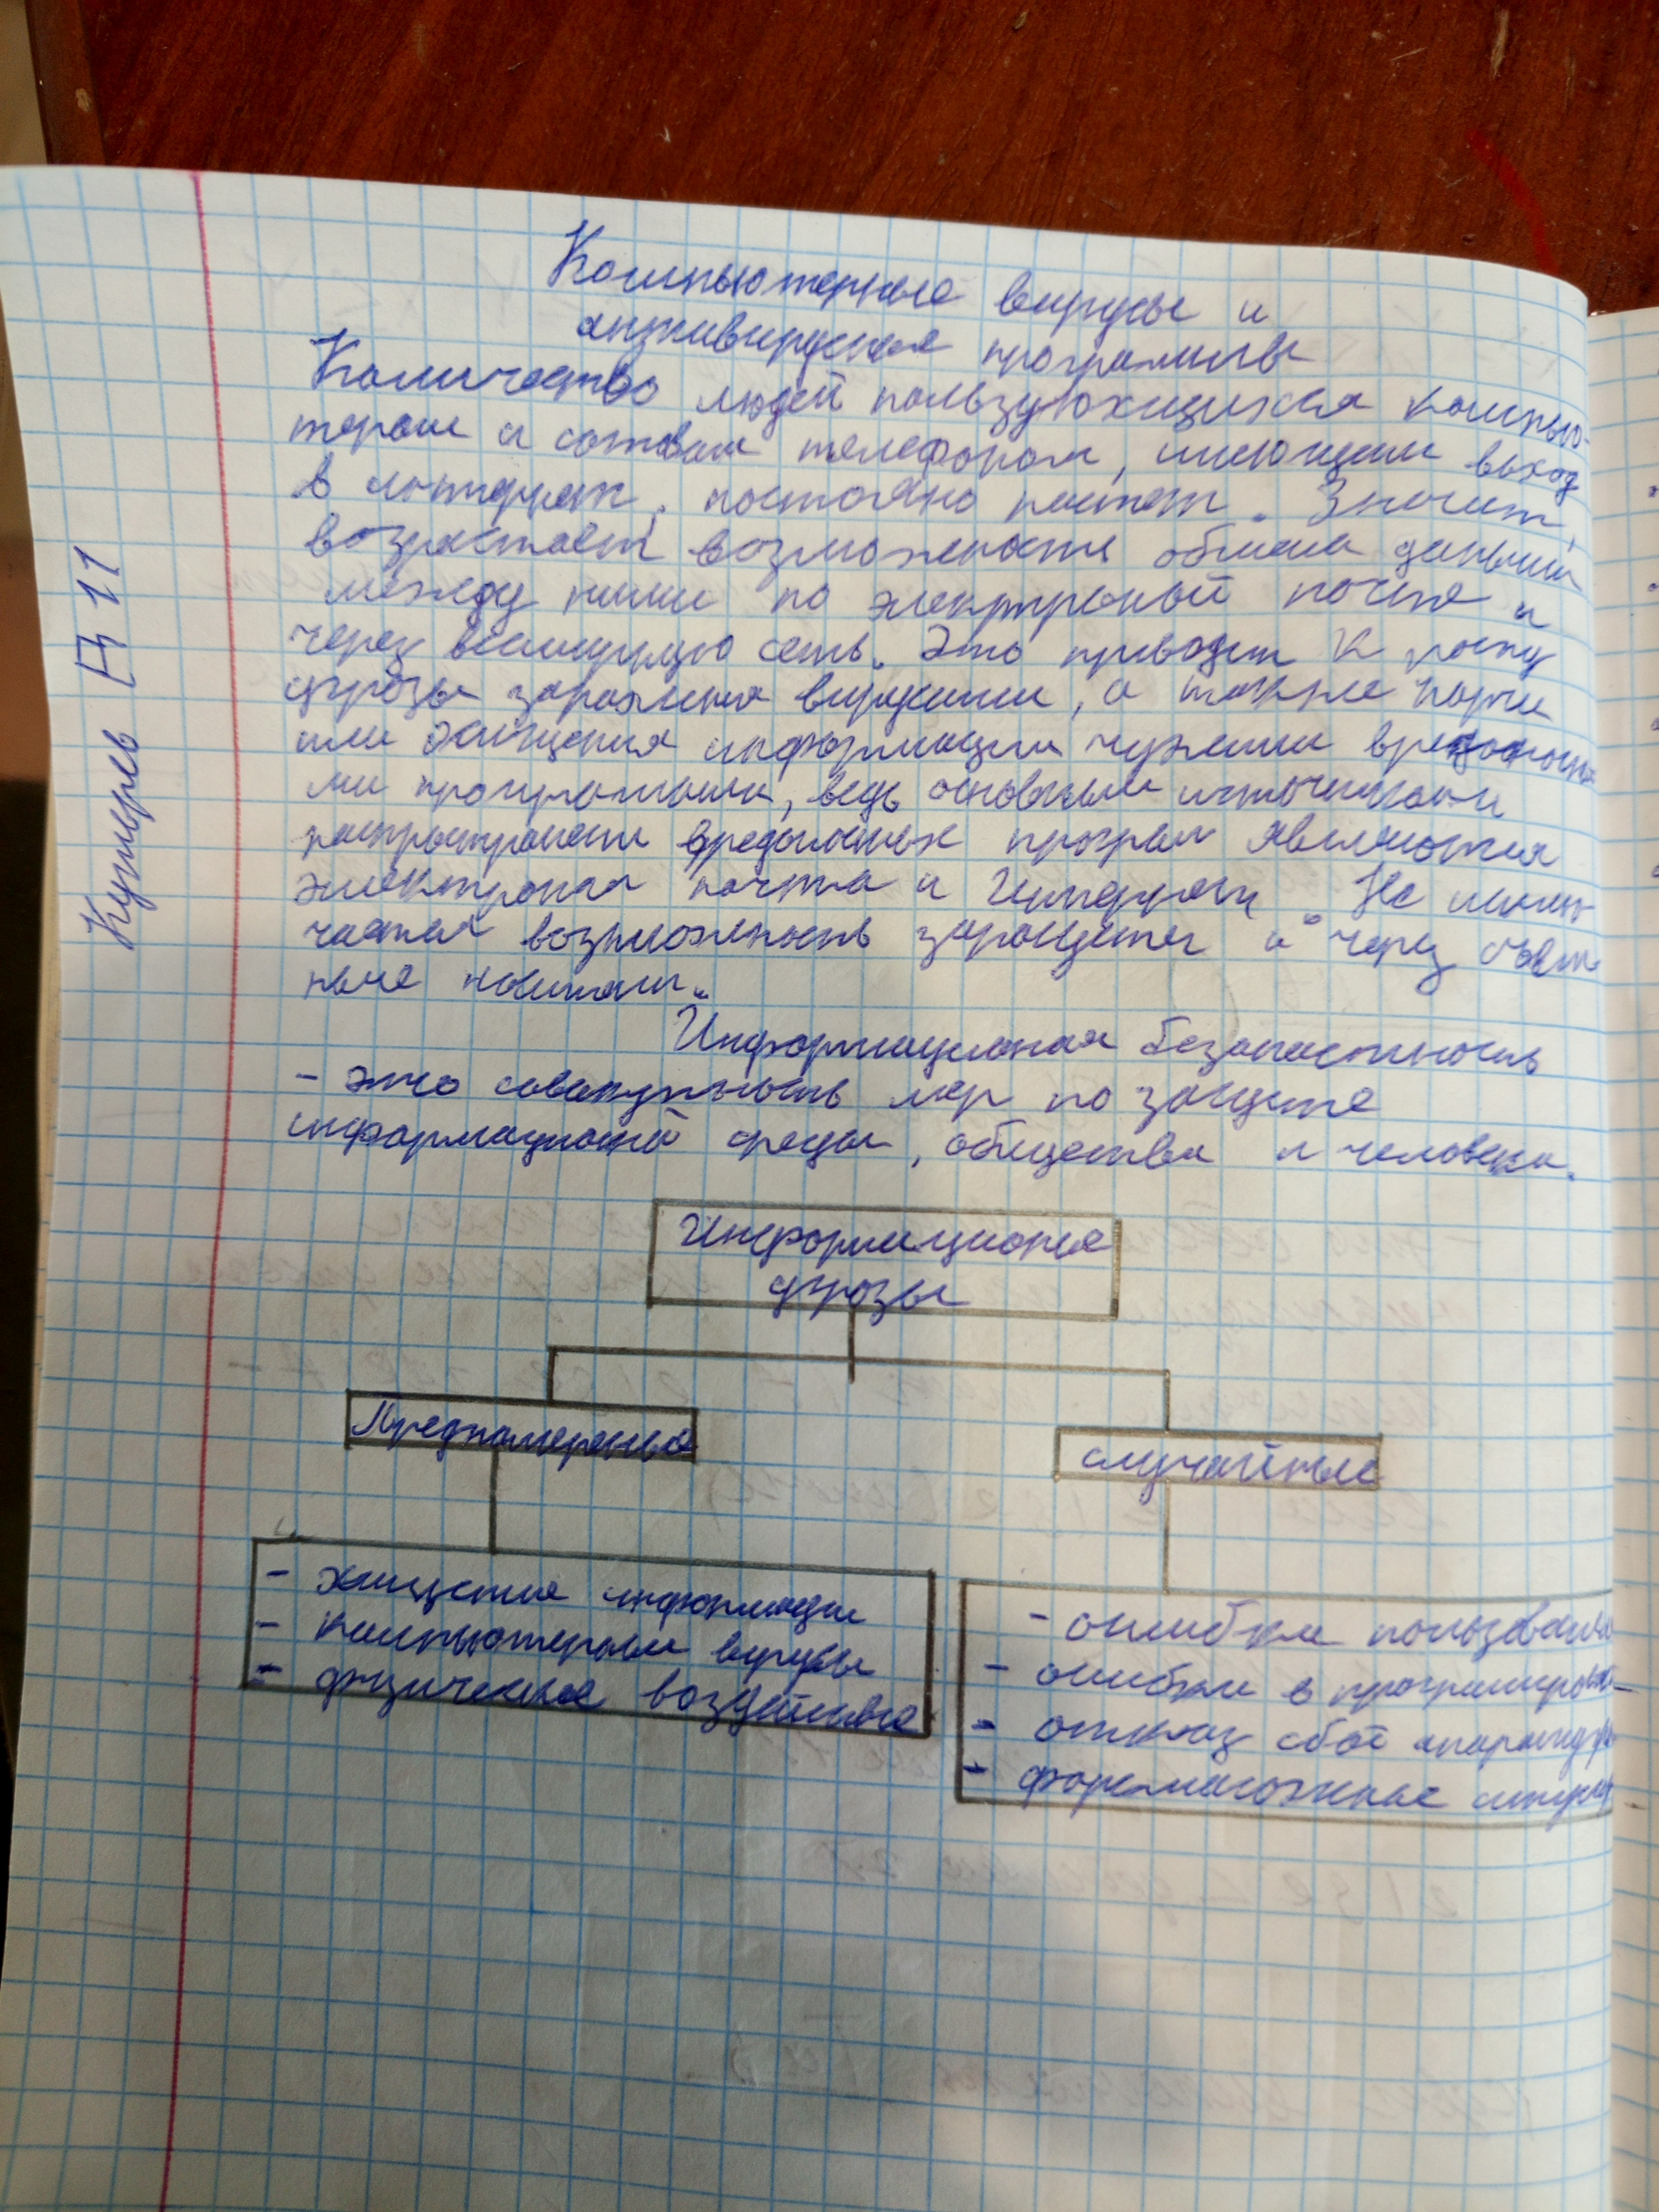 Компьютерные вирусы и
антивирусная программы
Количество людей пользующихся компью-
тером и сотовым телефоном, имеющим выход
в интернет, постояно растет. Значит,
возрастает возможность обмена данными
между ними по электроной почте и
через всемирную сеть. Это приводит к росту
угрозы заражения вирусами, а также порчи
или хищения информации чужими вредоносны
ми програмами, ведь основными источниками
вредоносных програм являются
электроная почта и Интернет. Не
возможность и через съем
ные
Информационая безопастность
- это совокупность мер по защите
информационой среды, общества и человека.
Информационые
угрозы
Преднамереные
случайные
- хищения информации
- компьютерные вирусы
- физические воздействие
- ошибки пользовател
- ошибки в програмирован
- отказ сбой апаратур
- форсмажорные ситуац
Кушерев 11